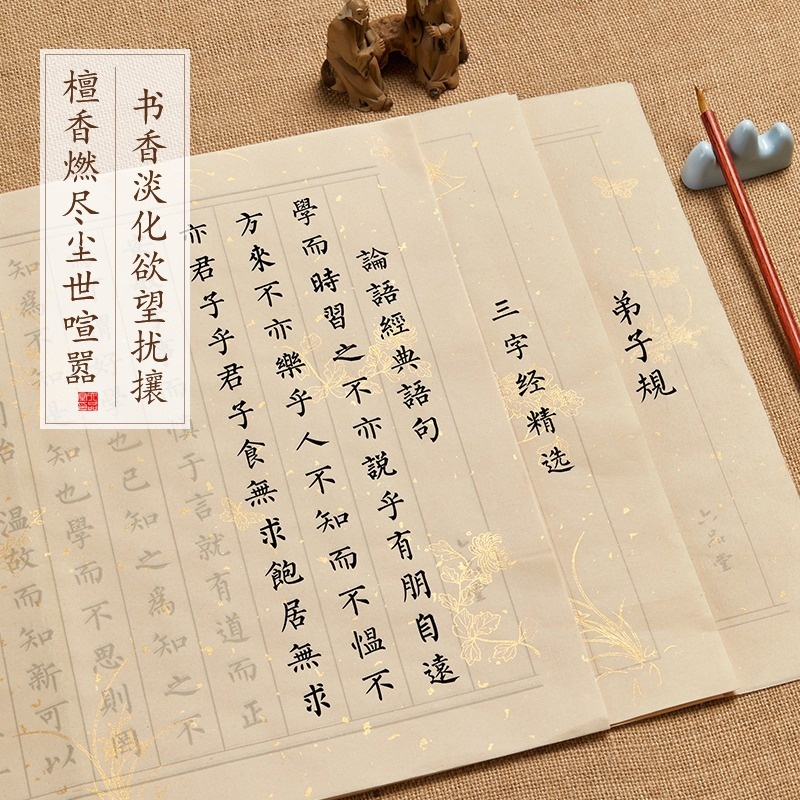 书香淡化欲望扰攘
檀香燃尽尘世喧嚣
弟子規
三字经精选
論語經典語句
學而時習之不亦説乎有朋自遠
方來不亦樂乎人不知而不愠不
亦君子乎君子食無求飽居無求
慎于言就有道而正
也已知之爲知之不
知也學而不思則罔
知爲不
温故而知新可以
品堂